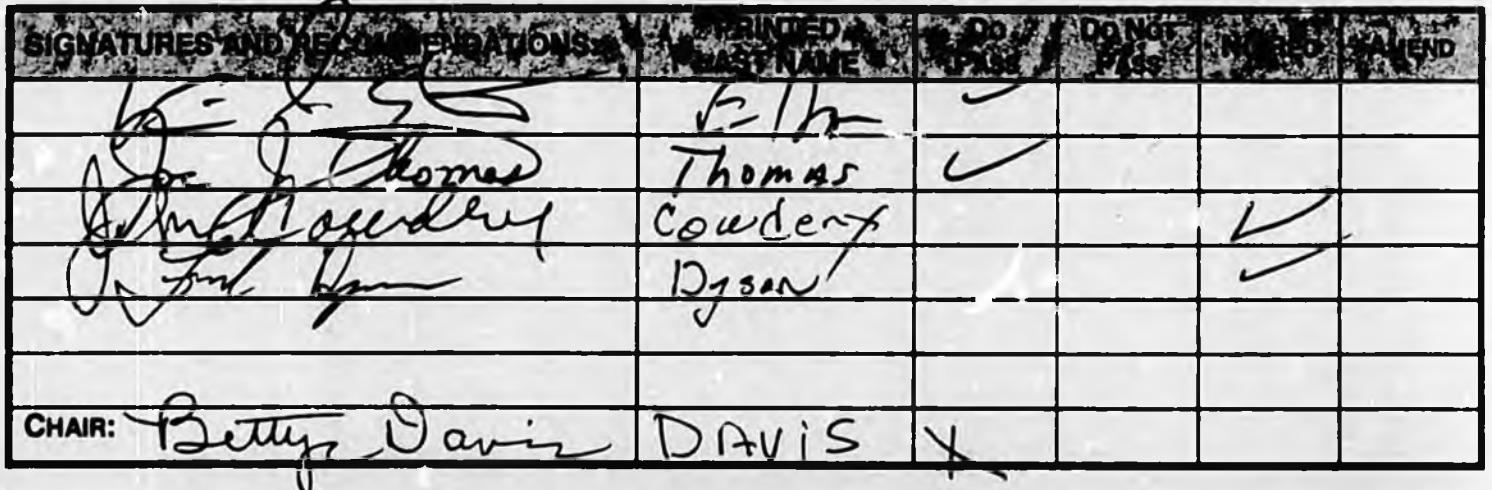 SIGNATURES AND RECOMMENDATIONS: PRINTED LAST NAME DO PASS DO NOT PASS NO REC AMEND
Joe J. Thomas Thomas ✓
Cowdery ✓
Fred Dyson Dyson ✓
CHAIR: Betty Davis DAVIS X